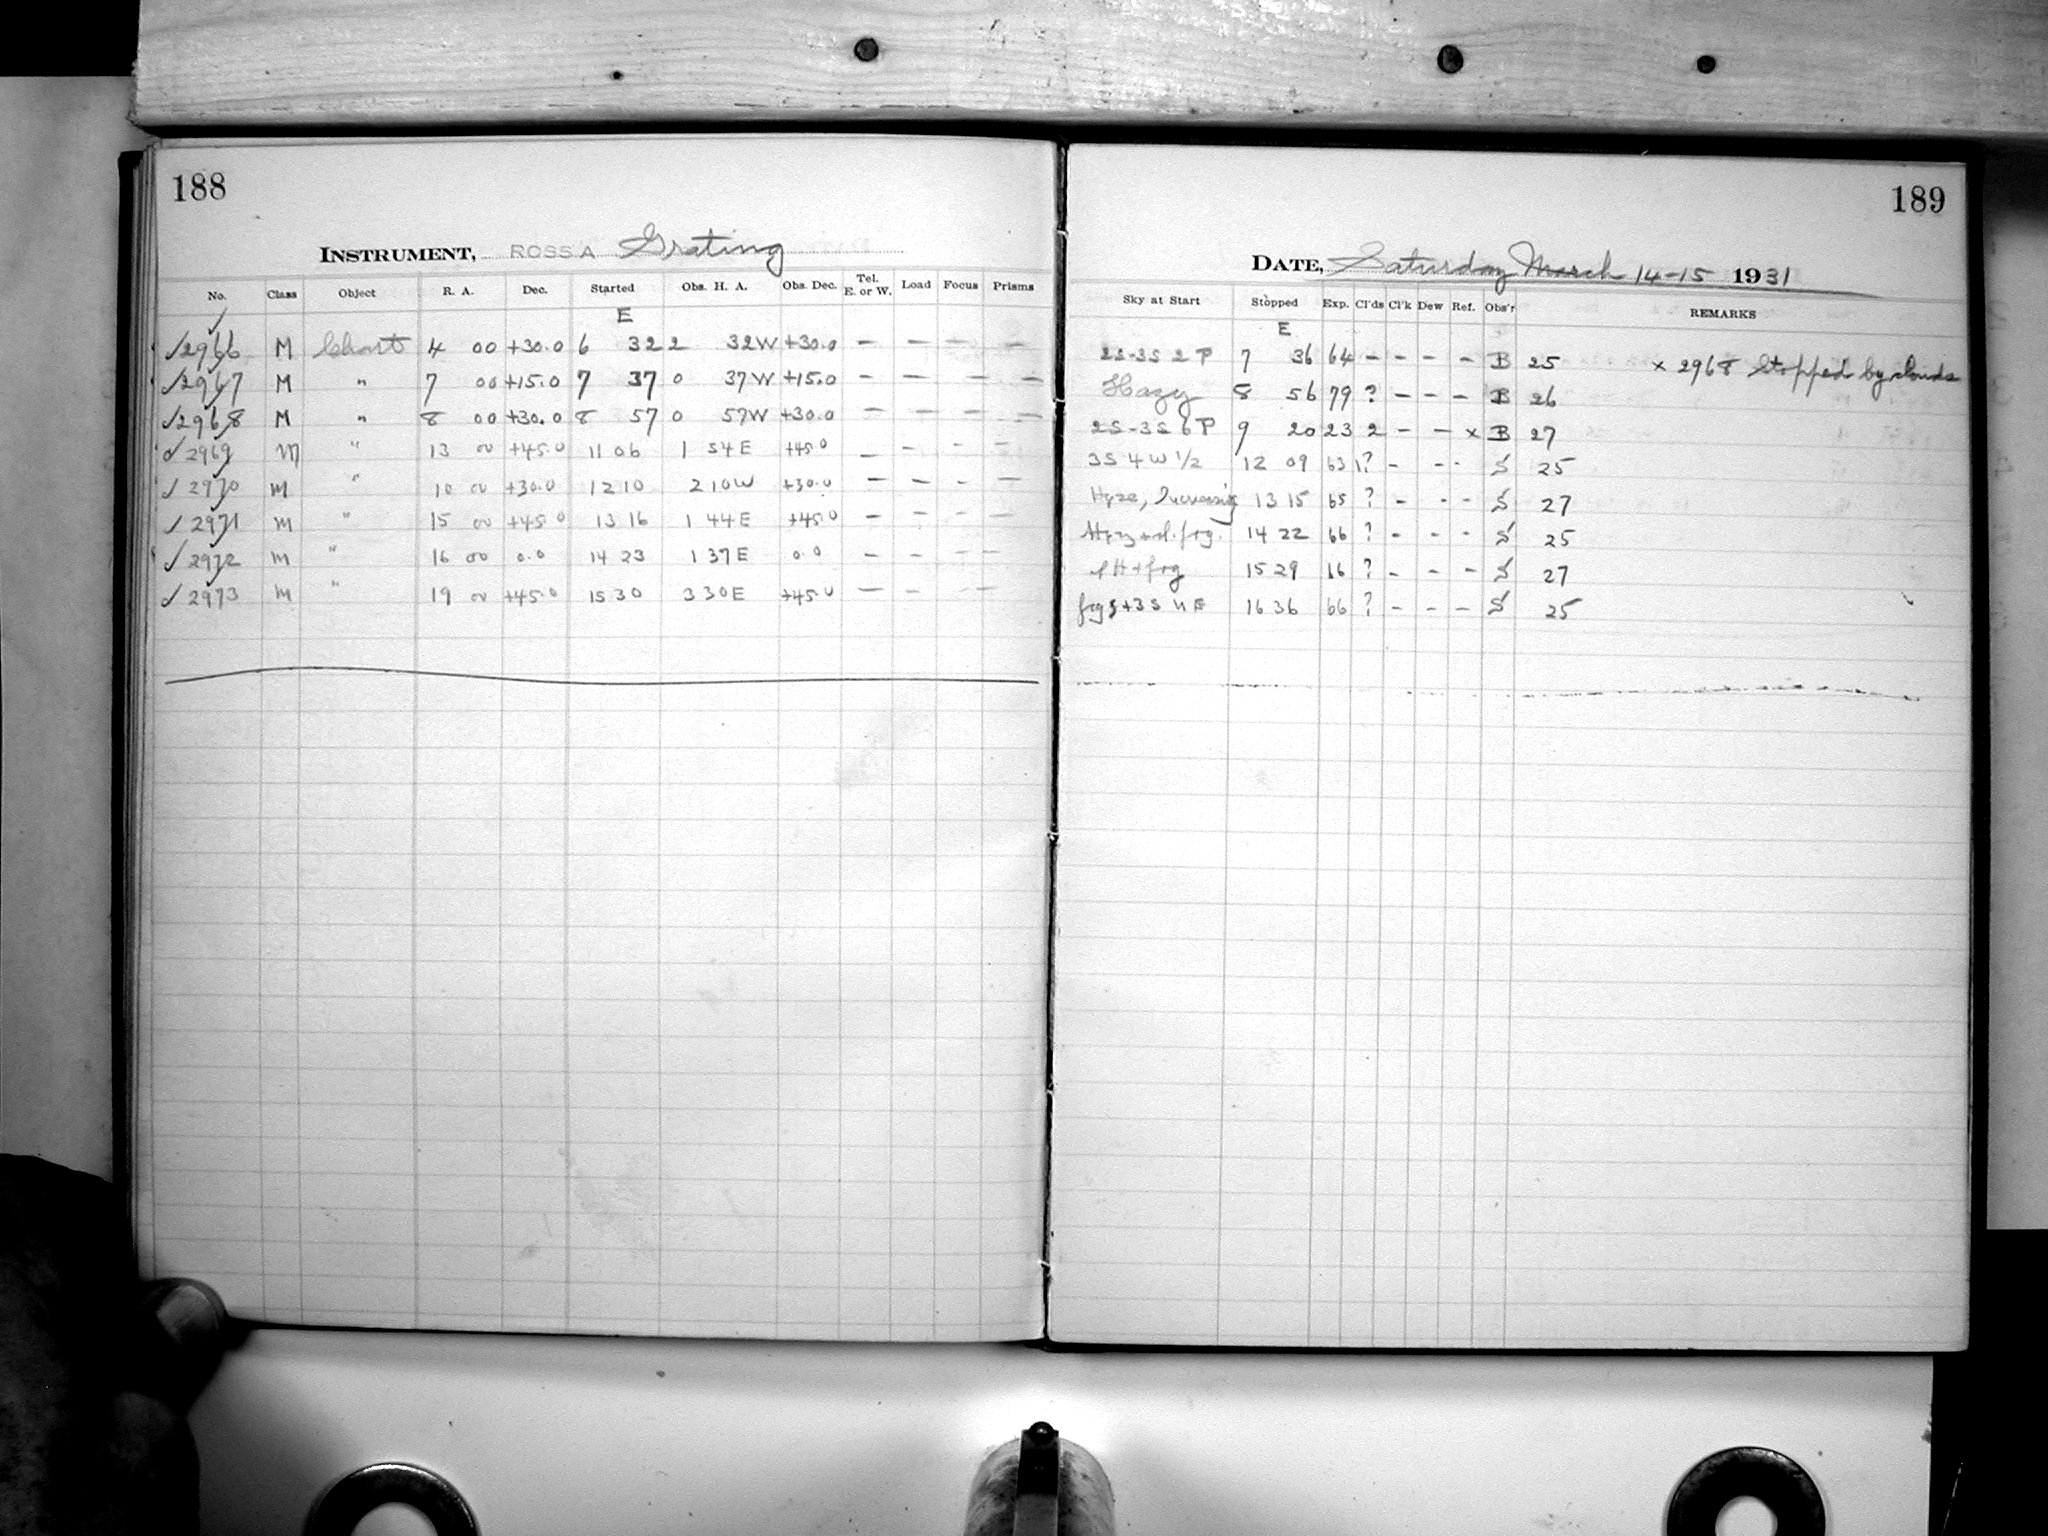 188
INSTRUMENT, ROSS A Grating
No. Class Object R. A. Dec. Started Obs. H. A. Obs. Dec. Tel. E. or W. Load Focus Prisms
E
✓2966 M Chart 4 00 +30.0 6 32 2 32W +30.0 — — — —
✓2967 M " 7 00 +15.0 7 37 0 37W +15.0 — — — —
✓2968 M " 8 00 +30.0 8 57 0 57W +30.0 — — — —
✓2969 M " 13 00 +45.0 11 06 1 54E +45.0 — — — —
✓2970 M " 10 00 +30.0 12 10 2 10W +30.0 — — — —
✓2971 M " 15 00 +45.0 13 16 1 44E +45.0 — — — —
✓2972 M " 16 00 0.0 14 23 1 37E 0.0 — — — —
✓2973 M " 19 00 +45.0 15 30 3 30E +45.0 — — — —
189
DATE, Saturday March 14-15 1931
Sky at Start Stopped Exp. Cl'ds Cl'k Dew Ref. Obs'r REMARKS
E
2S-3S 2 P 7 36 64 — — — — B 25 × 2968 Stopped by clouds
Hazy 8 56 79 ? — — — B 26
2S-3S 6 P 9 20 23 2 — — × B 27
3S 4W 1/2 12 09 63 1? — — - S 25
Haze, Increasing 13 15 65 ? - - - S 27
Hazy + sl. fog. 14 22 66 ? - - - S 25
fog 15 29 16 ? - - - S 27
+3S 4E 16 36 66 ? — — — S 25